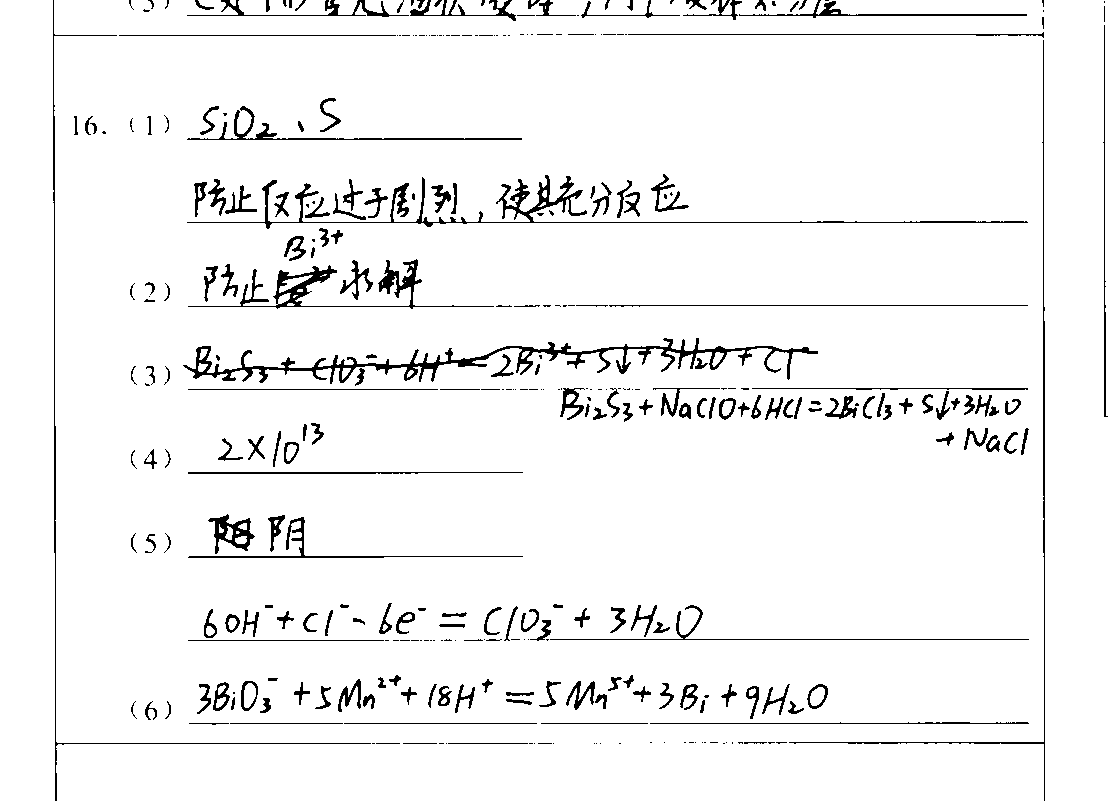 16. (1) SiO₂、S
防止反应过于剧烈, 使其充分反应
Bi³⁺
(2) 防止 水解
(3) Bi₂S₃ + ClO₃⁻ + 6H⁺ = 2Bi³⁺ + S↓ + 3H₂O + Cl⁻
Bi₂S₃ + NaClO + 6HCl = 2BiCl₃ + S↓ + 3H₂O
+ NaCl
(4) 2×10¹³
(5) 阴
6OH⁻ + Cl⁻ - 6e⁻ = ClO₃⁻ + 3H₂O
(6) 3BiO₃⁻ + 5Mn²⁺ + 18H⁺ = 5Mn⁵⁺ + 3Bi + 9H₂O